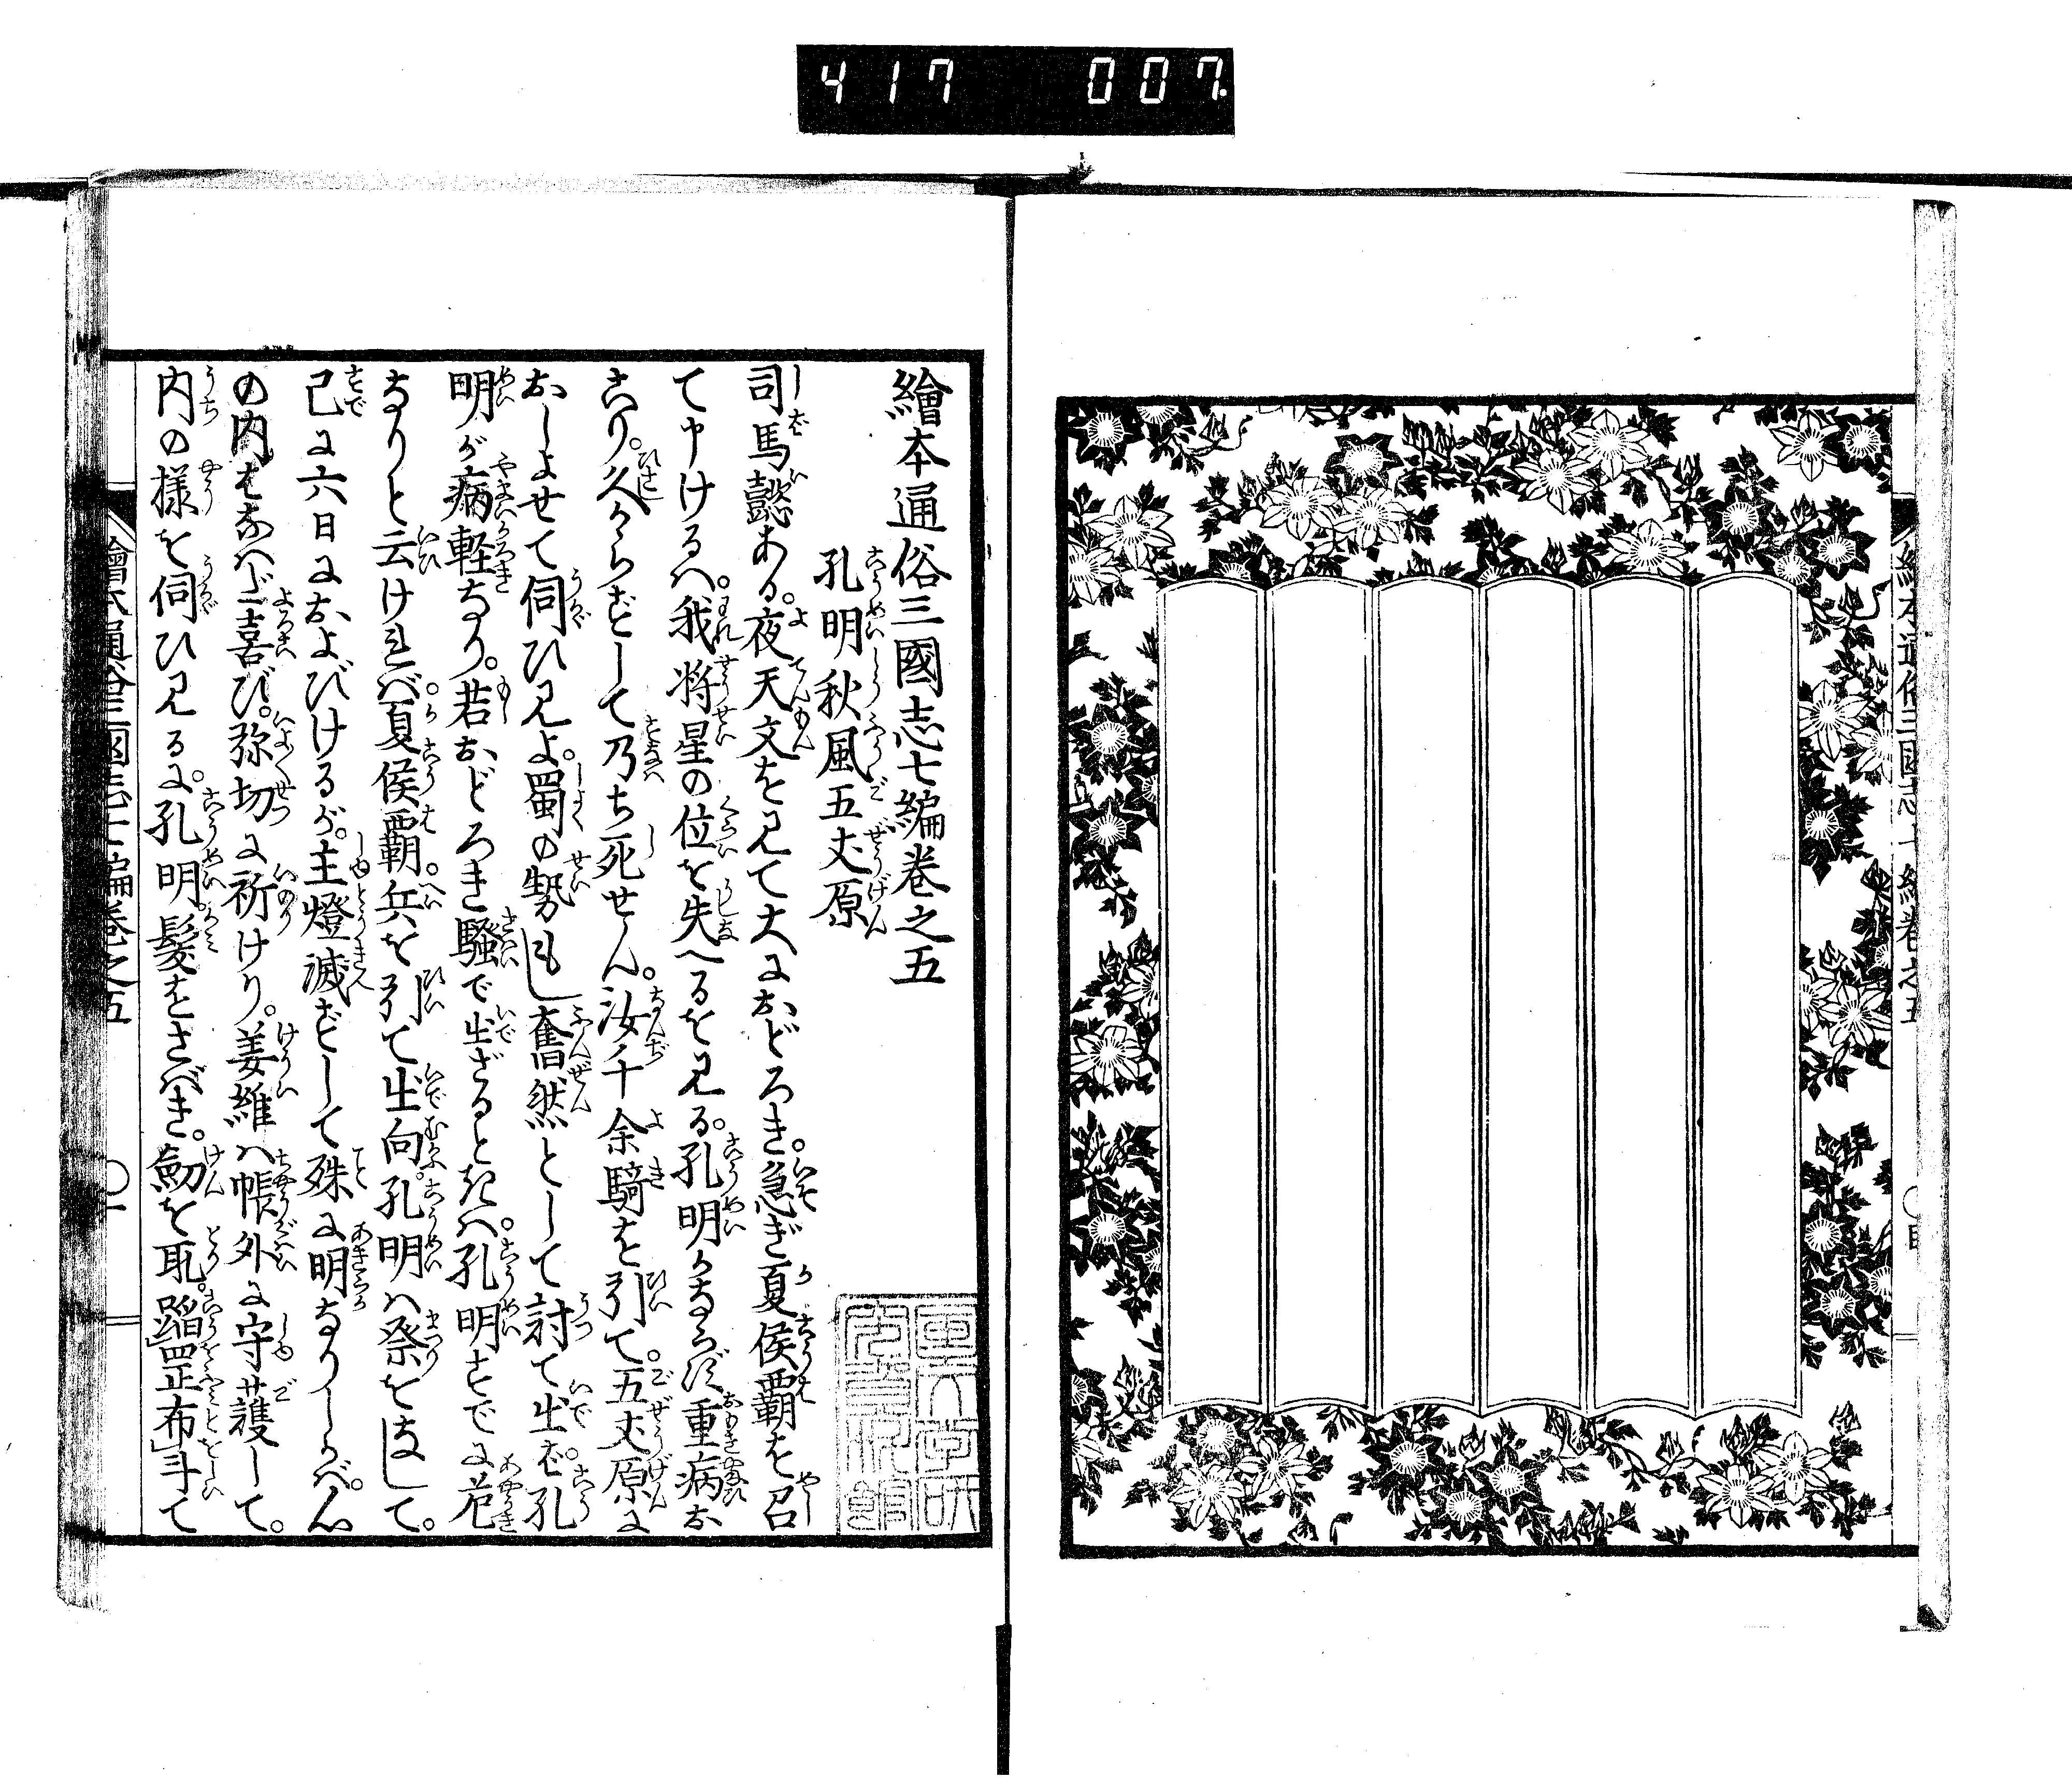 417 007
繪本通俗三國志七編巻之五
孔明秋風五丈原
司馬懿ある。夜天文を見て大におどろき。急ぎ夏侯覇を召
て申けるハ。我将星の位を失へるを見る。孔明かならず重病お
こり。久からずして乃ち死せん。汝千余騎を引て。五丈原に
おしよせて伺ひ見よ。蜀の勢もし奮然として討て出ば。孔
明が病軽なり。若おどろき騒で出ざるときハ。孔明すでに危
なりと云けれバ。夏侯覇。兵を引て出向。孔明ハ祭をなして。
已に六日におよびけるが。主燈滅ずして殊に明なりしかバ。心
の内はなハだ喜び。弥切に祈けり。姜維ハ帳外に守護して。
内の様を伺ひ見るに。孔明。髪をさバき。劔を取。蹈罡布斗て
繪本通俗三國志七編巻之五